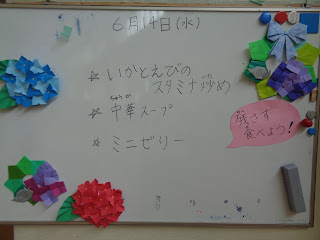 6月14日(水)
☆いかとえびの
スタミナ炒め
☆中華スープ
☆ミニゼリー
残さず
食べよう!